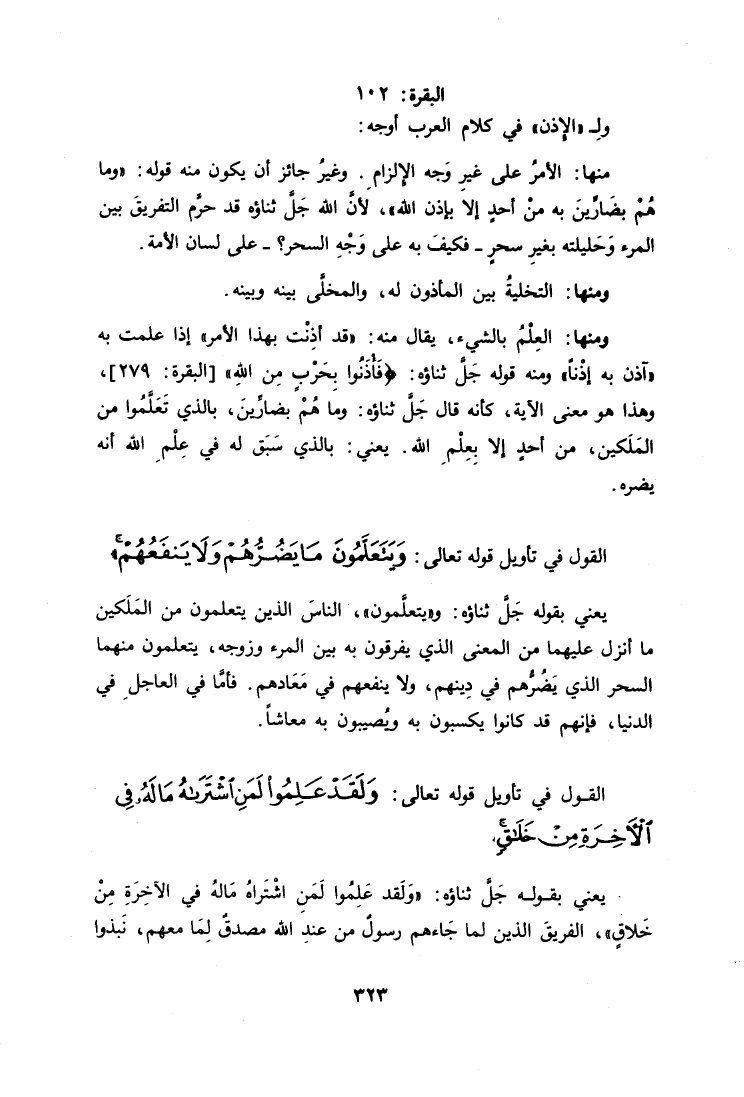 البقرة: ١٠٢
ولـ «الإِذن» في كلام العرب أوجه:
منها: الأمرُ على غيرِ وَجه الإِلزامِ. وغيرُ جائز أن يكون منه قوله: «وما
هُمْ بضَارِّينَ به منْ أحدٍ إلا بإذن الله»، لأنَّ الله جَلَّ ثناؤه قد حرَّم التفريقَ بين
المرء وَحَليلته بغيرِ سحرٍ - فكيفَ به على وَجْهِ السحر؟ - على لسان الأمة.
ومنها: التخليةُ بين المأذون له، والمخلَّى بينه وبينه.
ومنها: العِلْمُ بالشيء، يقال منه: «قد أذِنْت بهذا الأمر» إذا علمت به
«آذن به إذْناً» ومنه قوله جَلَّ ثناؤه: ﴿فَأْذَنُوا بِحَرْبٍ مِن اللهِ» [البقرة: ٢٧٩]،
وهذا هو معنى الآية، كأنه قال جَلَّ ثناؤه: وما هُمْ بضارِّينَ، بالذي تَعَلَّمُوا من
المَلَكين، من أحدٍ إلا بِعِلْمِ الله. يعني: بالذي سَبَق له في عِلْمِ الله أنه
يضره.
القول في تأويل قوله تعالى: وَيَتَعَلَّمُونَ مَا يَضُرُّهُمْ وَلَا يَنفَعُهُمْ ۚ﴾
يعني بقوله جَلَّ ثناؤه: و«يتعلَّمون»، الناسَ الذين يتعلمون من المَلَكين
ما أنزل عليهما من المعنى الذي يفرقون به بين المرء وزوجه، يتعلمون منهما
السحر الذي يَضُرُّهم في دِينهم، ولا ينفعهم في مَعَادهم. فأمَّا في العاجلِ في
الدنيا، فإنهم قد كانوا يكسبون به ويُصيبون به معاشاً.
القـول في تأويل قوله تعالى: وَلَقَدْ عَلِمُوا لَمَنِ ٱشْتَرَىٰهُ مَا لَهُۥ فِى
ٱلْأَخِرَةِ مِنْ خَلَٰقٍ ۚ
يعني بقـولـه جَلَّ ثناؤه: «وَلَقد عَلِمُوا لَمَنِ اشْتَراهُ مَالهُ في الآخِرَةِ مِنْ
خَلاقٍ»، الفريقَ الذين لما جَاءهم رسولٌ من عندِ الله مصدقٌ لِمَا معهم، نَبذوا
٣٢٣